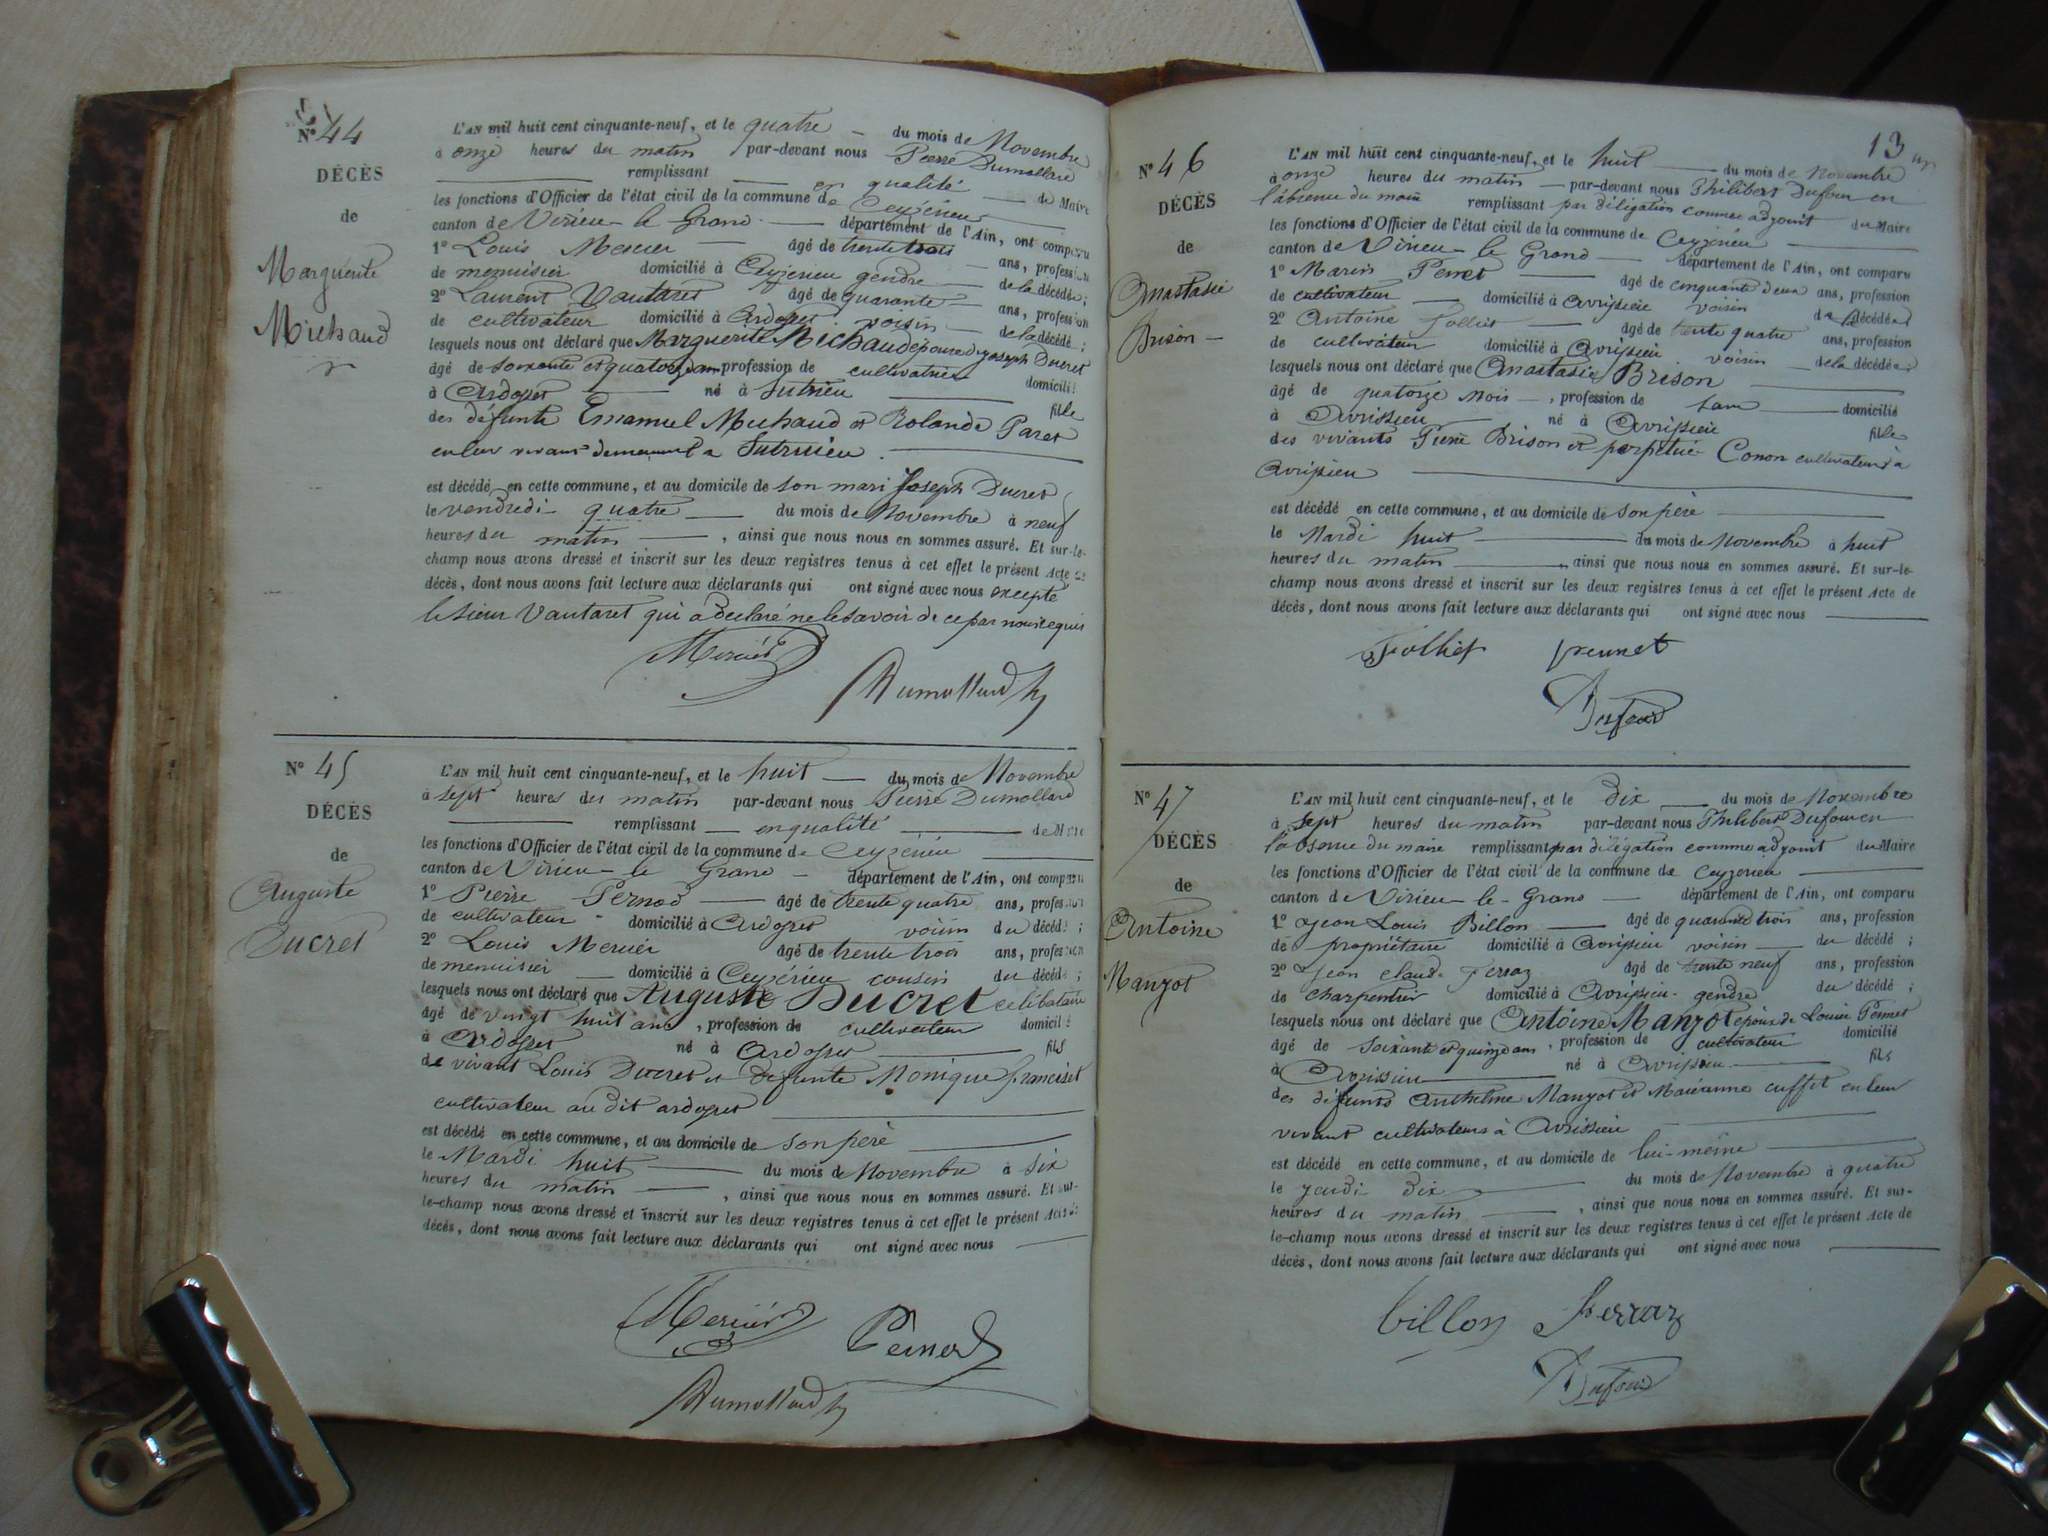 N° 44
DÉCÈS
de
Marguerite
Michaud
L'AN mil huit cent cinquante-neuf, et le quatre du mois de Novembre
à onze heures du matin par-devant nous Pierre Dumollard
remplissant en qualité de Maire
les fonctions d'Officier de l'état civil de la commune de Ceyzérieu
canton de Virieu-le Grand département de l'Ain, ont comparu
1° Louis Mercier âgé de trente trois ans, profession
de menuisier domicilié à Ceyzerieu gendre de la décédée ;
2° Laurent Vautaret âgé de quarante ans, profession
de cultivateur domicilié à Ardosset voisin de la décédé ;
lesquels nous ont déclaré que Marguerite Michaud épouse de Joseph Ducret
âgé de soixante et quatorze ans profession de cultivatrice domicilié
à Ardosset né à Sutrieu fille
des défunts Emanuel Michaud et Rolande Paret
en leur vivant demeurant à Sutrieu
est décédé en cette commune, et au domicile de son mari Joseph Ducret
le vendredi quatre du mois de Novembre à neuf
heures du matin , ainsi que nous nous en sommes assuré. Et sur-le-
champ nous avons dressé et inscrit sur les deux registres tenus à cet effet le présent Acte de
décès, dont nous avons fait lecture aux déclarants qui ont signé avec nous excepté
le sieur Vautaret qui a déclaré ne le savoir de ce par nous requis
Mercier
Dumollard
N° 45
DÉCÈS
de
Auguste
Ducret
L'AN mil huit cent cinquante-neuf, et le huit du mois de Novembre
à sept heures du matin par-devant nous Pierre Dumollard
remplissant en qualité de Maire
les fonctions d'Officier de l'état civil de la commune de Ceyzérieu
canton de Virieu-le Grand département de l'Ain, ont comparu
1° Pierre Pernod âgé de trente quatre ans, profession
de cultivateur domicilié à Ardosset voisin du décédé ;
2° Louis Mercier âgé de trente trois ans, profession
de menuisier domicilié à Ceyzérieu cousin du décédé ;
lesquels nous ont déclaré que Auguste Ducret célibataire
âgé de vingt huit ans , profession de cultivateur domicilié
à Ardosset né à Ardosset fils
de vivant Louis Ducret et défunte Monique Franciset
cultivateur au dit ardosset
est décédé en cette commune, et au domicile de son père
le Mardi huit du mois de Novembre à six
heures du matin , ainsi que nous nous en sommes assuré. Et sur-
le-champ nous avons dressé et inscrit sur les deux registres tenus à cet effet le présent Acte de
décès, dont nous avons fait lecture aux déclarants qui ont signé avec nous
Mercier
Pernod
Dumollard
13
N° 46
DÉCÈS
de
Anastasie
Brison
L'AN mil huit cent cinquante-neuf, et le huit du mois de Novembre
à onze heures du matin par-devant nous Philibert Dufour en
l'absence du maire remplissant par déligation comme adjoint du Maire
les fonctions d'Officier de l'état civil de la commune de Ceyzérieu
canton de Virieu-le Grand département de l'Ain, ont comparu
1° Marin Perret âgé de cinquante deux ans, profession
de cultivateur domicilié à Avrissieu voisin de la décédée
2° Antoine Folliet âgé de trente quatre ans, profession
de cultivateur domicilié à Avrissieu voisin de la décédée
lesquels nous ont déclaré que Anastasie Brison
âgé de quatorze mois , profession de sans domicilié
à Avrissieu né à Avrissieu fille
des vivants Pierre Brison et perpétue Conon cultivateurs à
Avrissieu
est décédé en cette commune, et au domicile de son père
le Mardi huit du mois de Novembre à huit
heures du matin , ainsi que nous nous en sommes assuré. Et sur-le-
champ nous avons dressé et inscrit sur les deux registres tenus à cet effet le présent Acte de
décès, dont nous avons fait lecture aux déclarants qui ont signé avec nous
Folliet
Dufour
N° 47
DÉCÈS
de
Antoine
Manzot
L'AN mil huit cent cinquante-neuf, et le dix du mois de Novembre
à sept heures du matin par-devant nous Philibert Dufour en
l'absence du maire remplissant par délégation comme adjoint du Maire
les fonctions d'Officier de l'état civil de la commune de Ceyzerieu
canton de Virieu-le-Grand département de l'Ain, ont comparu
1° Jean Louis Billon âgé de quarante trois ans, profession
de propriétaire domicilié à Avrissieu voisin du décédé ;
2° Jean Claude Ferraz âgé de trente neuf ans, profession
de charpentier domicilié à Avrissieu gendre du décédé ;
lesquels nous ont déclaré que Antoine Manzot époux de Louise Perret
âgé de soixante et quinze ans , profession de cultivateur domicilié
à Avrissieu né à Avrissieu fils
des défunts Anthelme Manzot et Marianne Cuffet en leur
vivant cultivateurs à Avrissieu
est décédé en cette commune, et au domicile de lui-même
le jeudi dix du mois de Novembre à quatre
heures du matin , ainsi que nous nous en sommes assuré. Et sur-
le-champ nous avons dressé et inscrit sur les deux registres tenus à cet effet le présent Acte de
décès, dont nous avons fait lecture aux déclarants qui ont signé avec nous
billon ferraz
Dufour